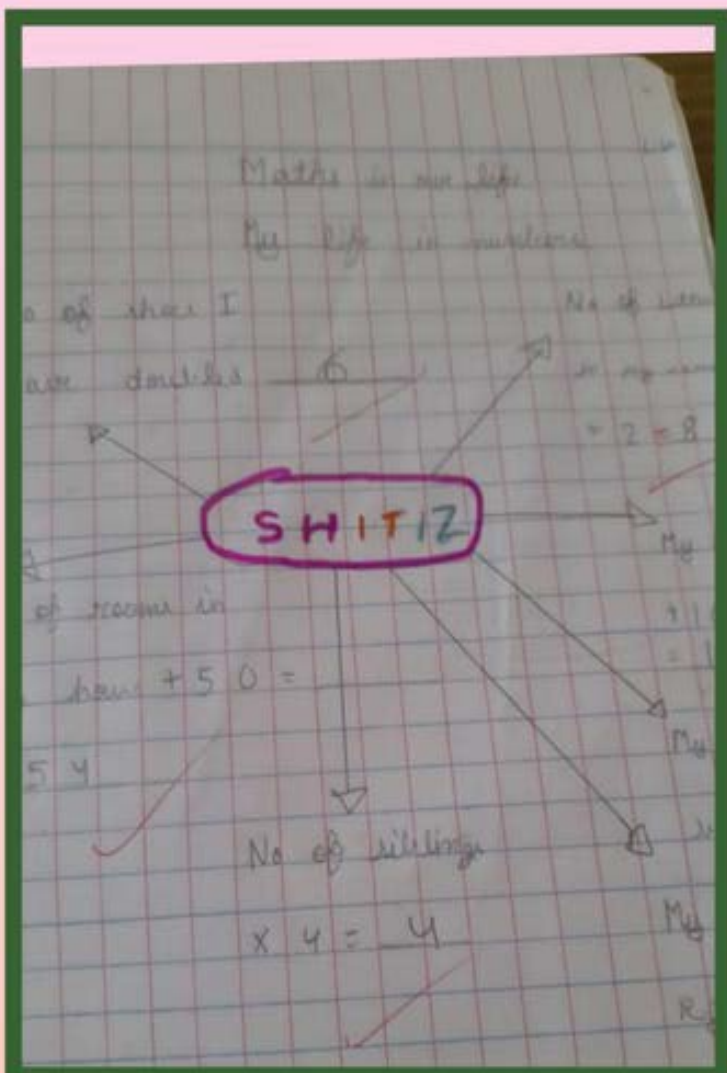 Maths in our life
My life in numbers
o of shoes I
ave doubled 6
No of
in my
÷ 2 = 8
SHITIZ
My
+ 1
= 1
of rooms in
hou + 50 =
54
My
No of siblings
x 4 = 4
My
R